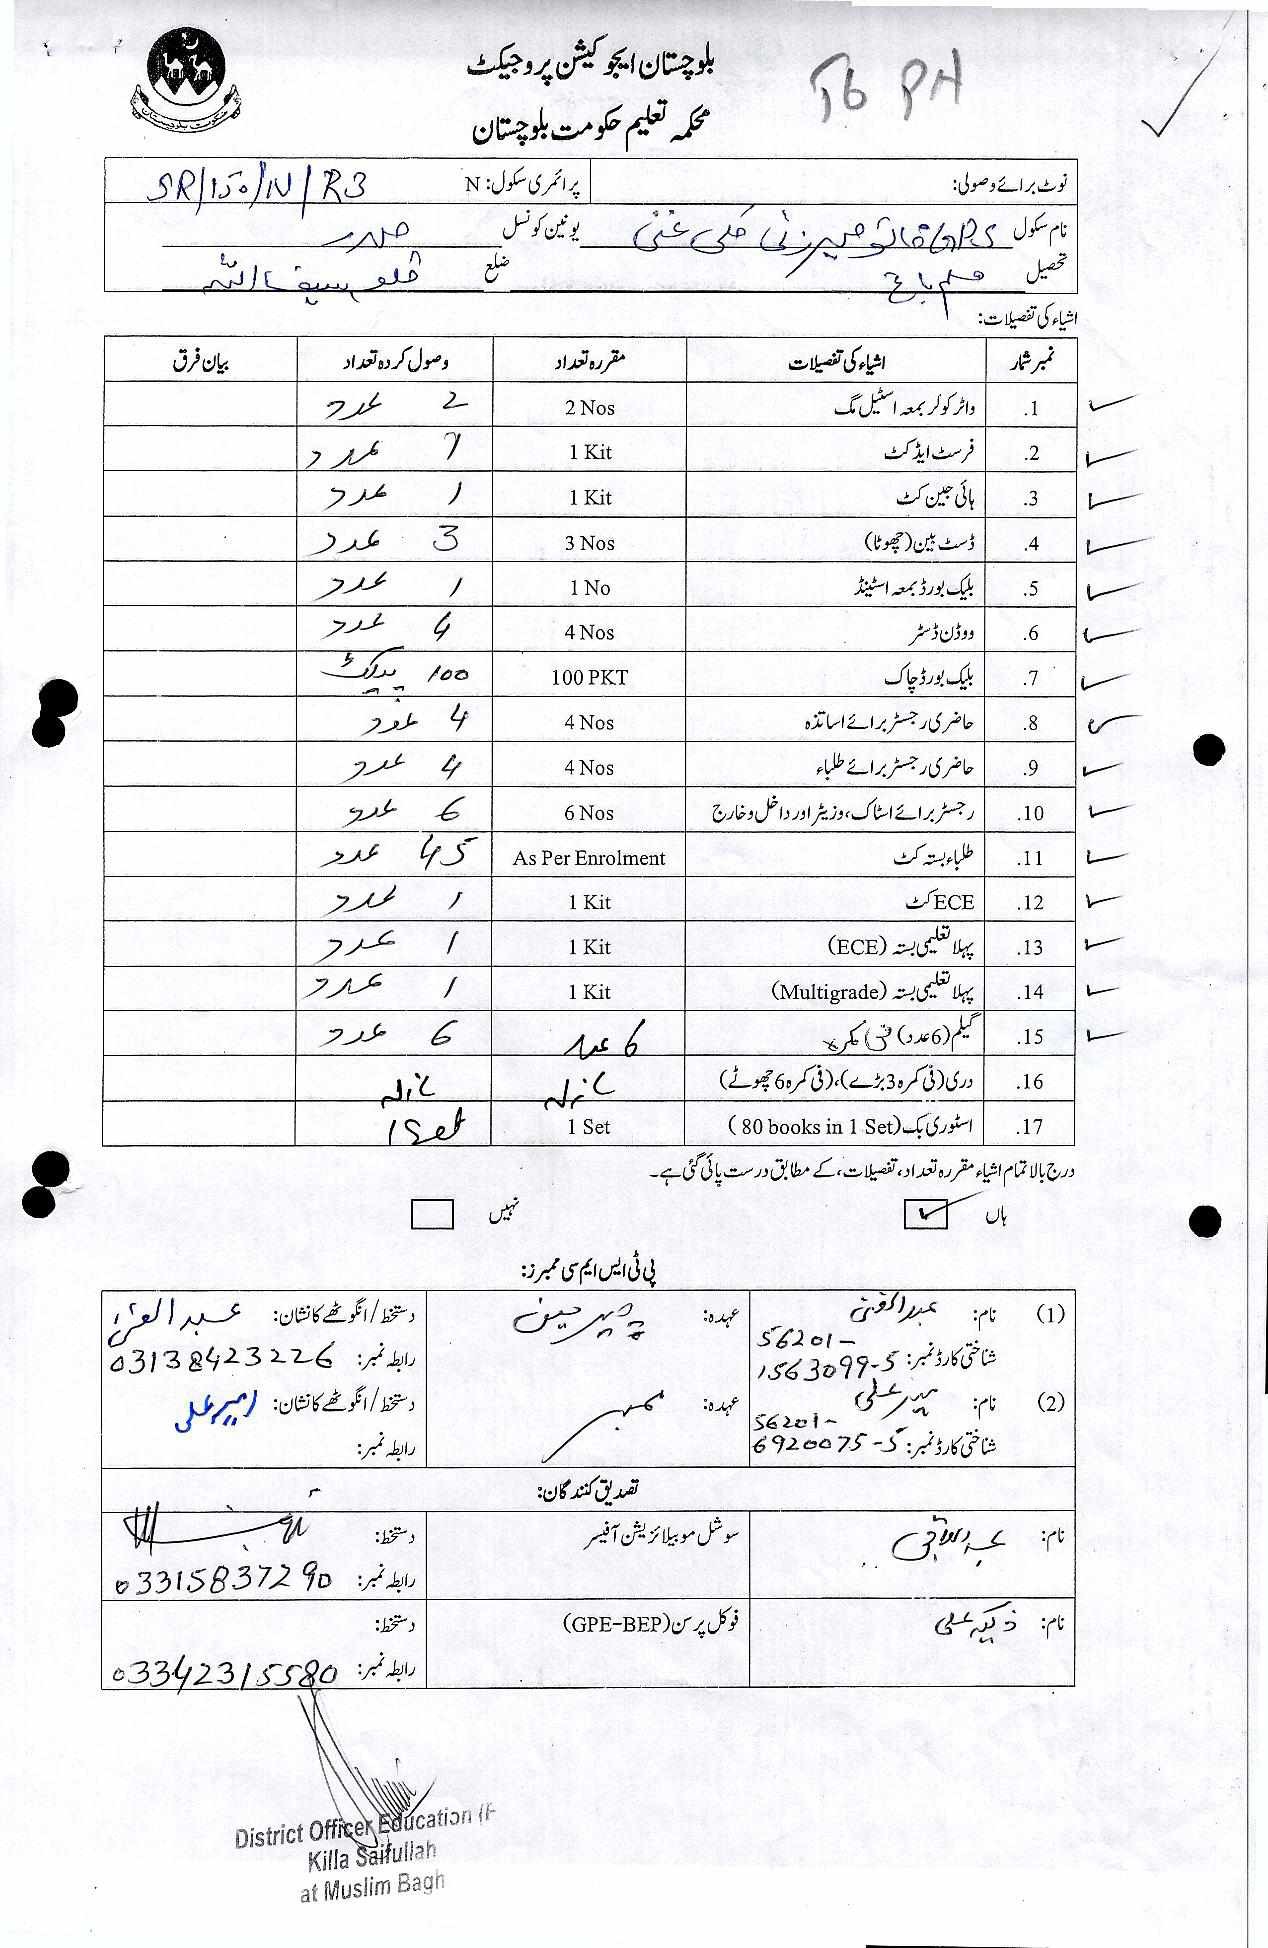 بلوچستان ایجوکیشن پروجیکٹ
محکمہ تعلیم حکومت بلوچستان
حکومت بلوچستان
نوٹ برائے وصولی: پرائمری سکول: N SR/150/N/R3
نام سکول GPS یونین کونسل صدر
تحصیل مسلم باغ ضلع قلعہ سیف اللہ
اشیاء کی تفصیلات:
نمبر شمار اشیاء کی تفصیلات مقررہ تعداد وصول کردہ تعداد بیان فرق
1. واٹر کولر بمعہ اسٹیل مگ 2 Nos 2 عدد
2. فرسٹ ایڈ کٹ 1 Kit 1 عدد
3. ہائی جین کٹ 1 Kit 1 عدد
4. ڈسٹ بین (چھوٹا) 3 Nos 3 عدد
5. بلیک بورڈ بمعہ اسٹینڈ 1 No 1 عدد
6. ووڈن ڈسٹر 4 Nos 4 عدد
7. بلیک بورڈ چاک 100 PKT 100 پیکٹ
8. حاضری رجسٹر برائے اساتذہ 4 Nos 4 عدد
9. حاضری رجسٹر برائے طلباء 4 Nos 4 عدد
10. رجسٹر برائے اسٹاک، وزیٹر اور داخل و خارج 6 Nos 6 عدد
11. طلباء بستہ کٹ As Per Enrolment 45 عدد
12. ECE کٹ 1 Kit 1 عدد
13. پہلا تعلیمی بستہ (ECE) 1 Kit 1 عدد
14. پہلا تعلیمی بستہ (Multigrade) 1 Kit 1 عدد
15. گیلم (6 عدد) فی کمرہ 6 عدد 6 عدد
16. دری (فی کمرہ 3 بڑے)، (فی کمرہ 6 چھوٹے)
17. اسٹوری بک (80 books in 1 Set) 1 Set 1 Set
درج بالا تمام اشیاء مقررہ تعداد، تفصیلات، کے مطابق درست پائی گئی ہے۔
ہاں نہیں
پی ٹی ایس ایم سی ممبرز:
(1) نام: عبدالغنی عہدہ: چیئرمین دستخط/انگوٹھے کا نشان: عبدالغنی
شناختی کارڈ نمبر: 56201-1563099-5 رابطہ نمبر: 03138423226
(2) نام: میر علی عہدہ: ممبر دستخط/انگوٹھے کا نشان: امیر علی
شناختی کارڈ نمبر: 56201-6920075-5 رابطہ نمبر:
تصدیق کنندگان:
نام: عبدالباقی سوشل موبیلائزیشن آفیسر دستخط:
رابطہ نمبر: 03315837290
نام: علی فوکل پرسن (GPE-BEP) دستخط:
رابطہ نمبر: 03342315580
District Officer Education (F
Killa Saifullah
at Muslim Bagh